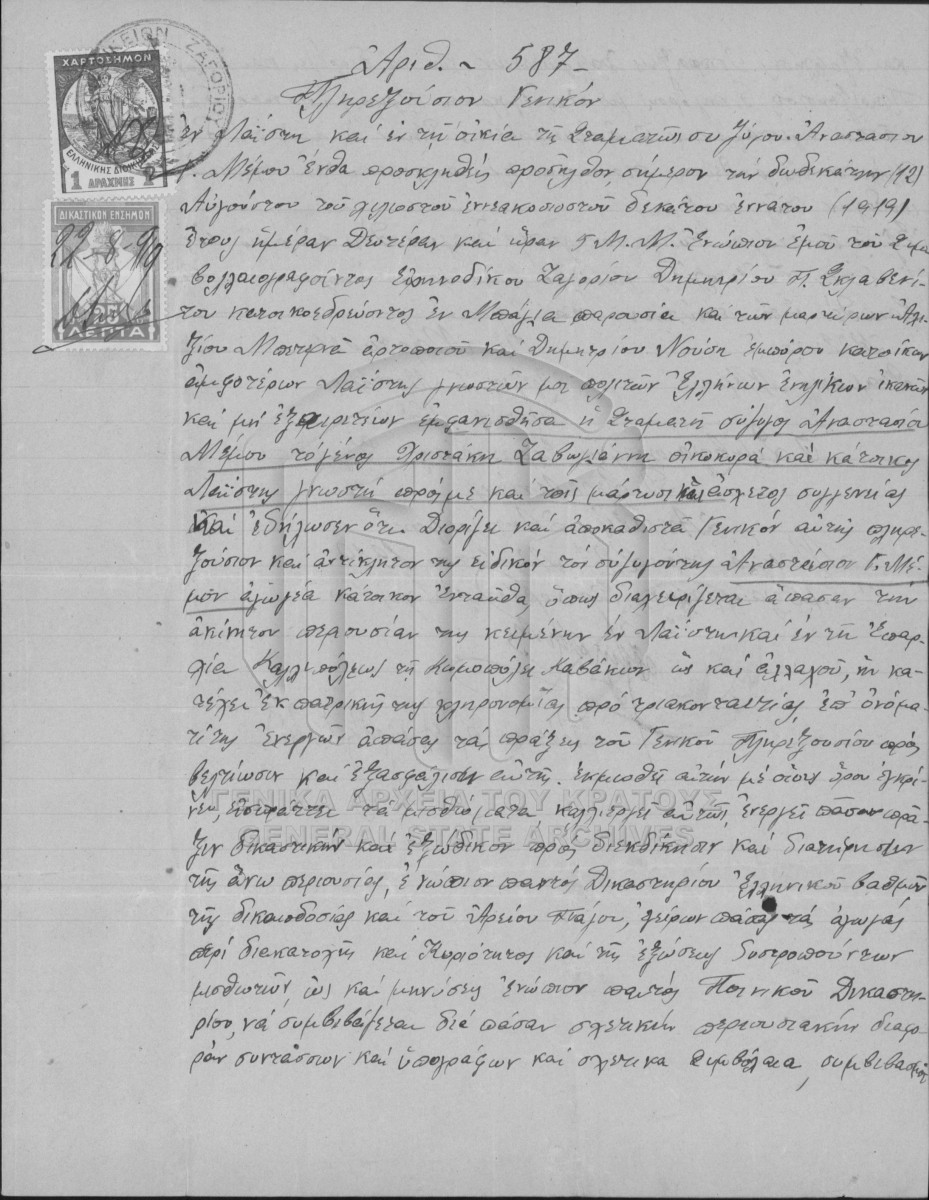 ΕΙΡΗΝΟΔΙΚΕΙΟΝ ΖΑΓΟΡΙΟΥ
ΧΑΡΤΟΣΗΜΟΝ
ΕΛΛΗΝΙΚΗΣ ΔΙΟΙΚΗΣΕΩΣ
1 ΔΡΑΧΜΗΣ 1
ΔΙΚΑΣΤΙΚΟΝ ΕΝΣΗΜΟΝ
22-8-919
ΛΕΠΤΑ
Ἀριθ. ~ 587 -
Πληρεξούσιον Γενικόν
Ἐν Λαΐστῃ καὶ ἐν τῇ οἰκίᾳ τῆς Σταματῆς συζύγου Ἀναστασίου
Γ. Μέμου ἔνθα προσκληθεὶς προσῆλθον, σήμερον τὴν δωδεκάτην (12)
Αὐγούστου τοῦ χιλιοστοῦ ἐννεακοσιοστοῦ δεκάτου ἐννάτου (1919)
ἔτους ἡμέραν Δευτέραν καὶ ὥραν Γ. Μ. Μ. ἐνώπιον ἐμοῦ τοῦ Συμ
βολαιογραφοῦντος Εἰρηνοδίκου Ζαγορίου Δημητρίου Π. Σκλαβενί-
του κατοικοεδρεύοντος ἐν παρουσίᾳ καὶ τῶν μαρτύρων Ἀλε
ξίου ἀρτοποιοῦ καὶ Δημητρίου Νούση ἐμπόρου κατοίκων
ἀμφοτέρων Λαΐστης γνωστῶν μοι πολιτῶν Ἑλλήνων ἐνηλίκων ἱκανῶν
καὶ μὴ ἐξαιρετέων ἐμφανισθεῖσα ἡ Σταματὴ σύζυγος Ἀναστασίου
Μέμου τὸ γένος Χριστάκη οἰκοκυρὰ καὶ κάτοικος
Λαΐστης γνωστὴ πρός με καὶ τοὺς μάρτυσι καὶ ἄσχετος συγγενείας
καὶ ἐδήλωσεν ὅτι Διορίζει καὶ ἀποκαθιστᾶ Γενικόν αὐτῆς πληρε
ξούσιον καὶ ἀντίκλητον της εἰδικόν τὸν σύζυγόν της Ἀναστάσιον Γ. Μέ-
μον ἀγωγέα κάτοικον ἐνταῦθα, ὅπως διαχειρίζεται ἅπασαν τὴν
ἀκίνητον περουσίαν της κειμένην ἐν Λαΐστῃ καὶ ἐν τῇ Ἐπαρ-
χίᾳ Καλλιπόλεως τῇ Κωμοπόλει Καβάκιον ὡς καὶ ἀλλαχοῦ, ἣν κα-
τέχει ἐκ πατρικῆς της κληρονομίας πρὸ τριακονταετίας, ἐπ' ὀνόμα-
τί της ἐνεργῶν ἁπάσας τὰς πράξεις τοῦ Γενικοῦ Πληρεξουσίου πρὸς
βελτίωσιν καὶ ἐξασφάλισιν αὐτῆς. ἐκμισθοῖ αὐτὴν μὲ οἵους ὅρου ἐγκρί
νει, εἰσπράττει τὰ μισθώματα, καλλιεργεῖ αὐτὴν, ἐνεργεῖ πᾶσαν πρᾶ
ξιν δικαστικὴν καὶ ἐξώδικον πρὸς διεκδίκησιν καὶ διατήρησιν
τῆς ἄνω περιουσίας, ἐνώπιον παντὸς Δικαστηρίου Ἑλληνικοῦ βαθμοῦ
τῆς δικαιοδοσίας καὶ τοῦ Ἀρείου Πάγου, ἐγείρων πάσας τὰς ἀγωγὰς
περὶ διακατοχῆς καὶ Κυριότητος καὶ τῆς ἐξώσεως δυστροπούντων
μισθωτῶν, ὡς καὶ μηνύσεις ἐνώπιον παντὸς Ποινικοῦ Δικαστη-
ρίου, νὰ συμβιβάζεται διὰ πᾶσαν σχετικὴν περιουσιακὴν διαφο-
ράν, συντάσσων καὶ ὑπογράφων καὶ σχετικὰ συμβόλαια, συμβιβασμοὺς
ΓΕΝΙΚΑ ΑΡΧΕΙΑ ΤΟΥ ΚΡΑΤΟΥΣ
GENERAL STATE ARCHIVES